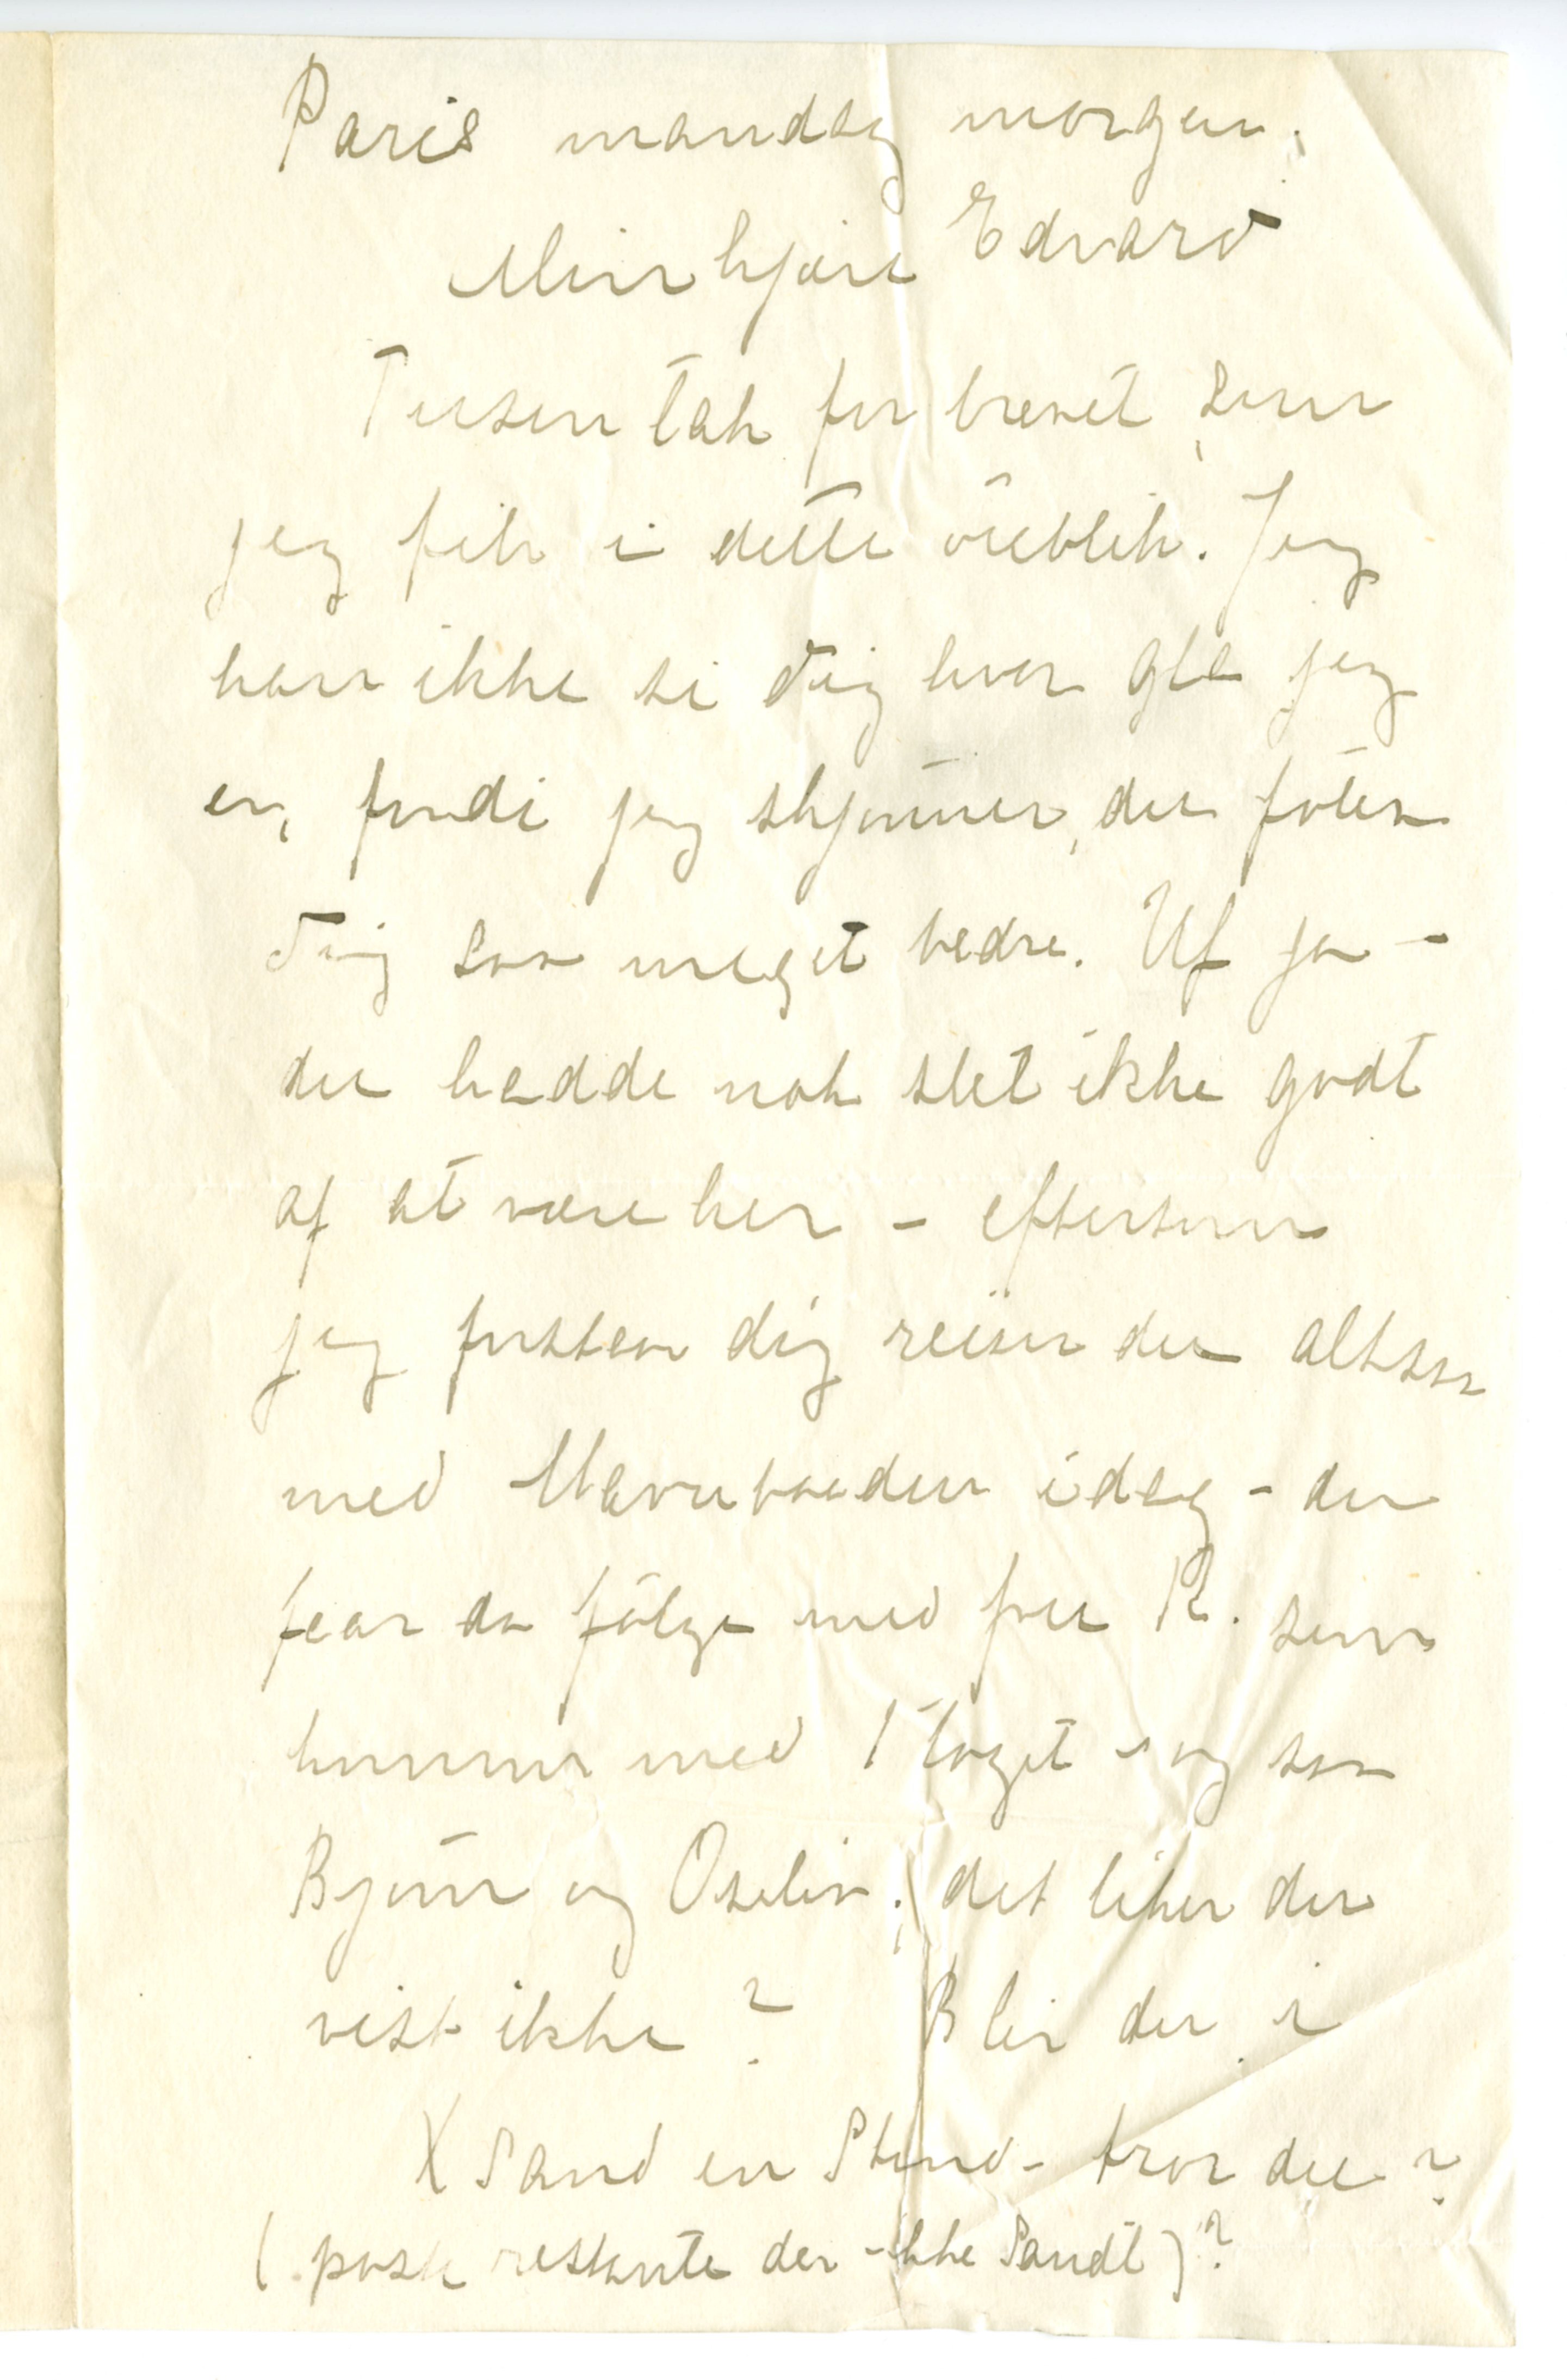 Paris mandag morgen.
Min kjære Edvard
Tusen tak for brevet, som
jeg fik i dette öieblik. Jeg
kan ikke si dig hvor gla jeg
er, fordi jeg skjönner, du föler
dig saa meget bedre. Uf ja –
du hadde nok slet ikke godt
af at være her – eftersom
jeg forstaar dig reiser du altsaa
med Havnbaaden idag – du
faar da fölge med fru R. som
kommer med 1 toget – og saa
Bjönn og Oselio. det liker du
vist ikke? Blir du i
X Sand en Stund – tror du?
(poste restante der – ikke Sandt)?